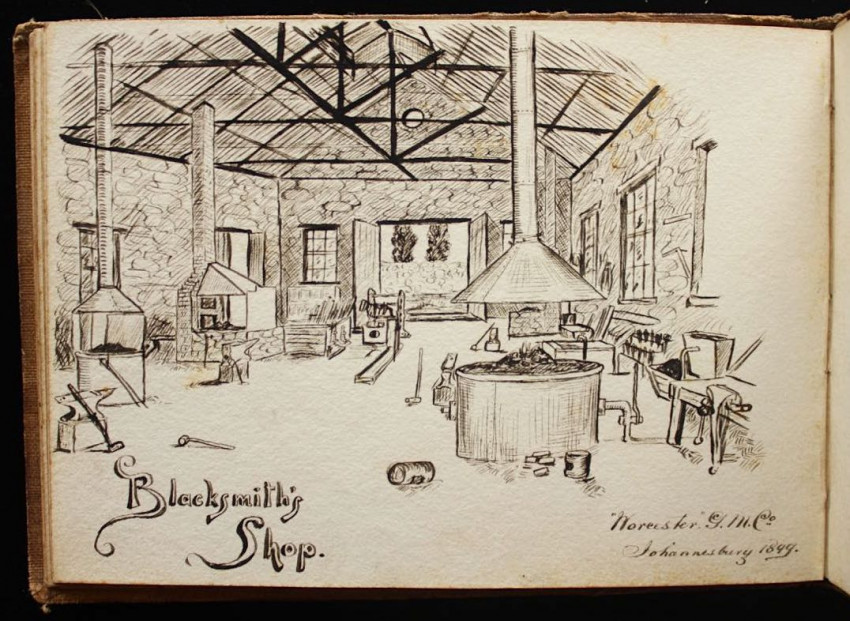 Blacksmith's
Shop.
"Worcester" G. M. Co
Johannesburg 1899.